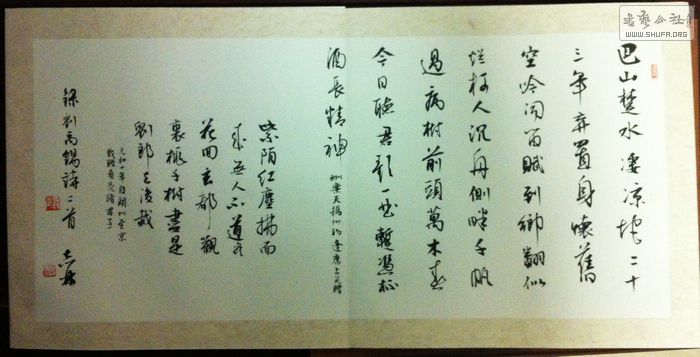 巴山楚水凄凉地二十
三年弃置身懐舊
空吟闻笛賦到鄉翻似
烂柯人沉舟侧畔千帆
過病树前頭萬木春
今日聽君歌一曲暫憑杯
酒長精神
酬樂天揚州初逢席上見贈
紫陌红塵拂面
来無人不道看
花回玄都觀
裏桃千树盡是
劉郎去後栽
元和十年自朗州至京
戲贈看花諸君子
錄劉禹錫詩二首
书艺公社
WWW.SHUFA.ORG